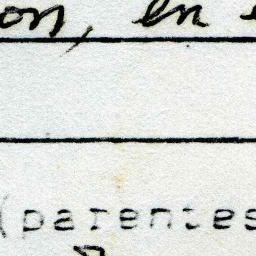 on, en e
(parentes